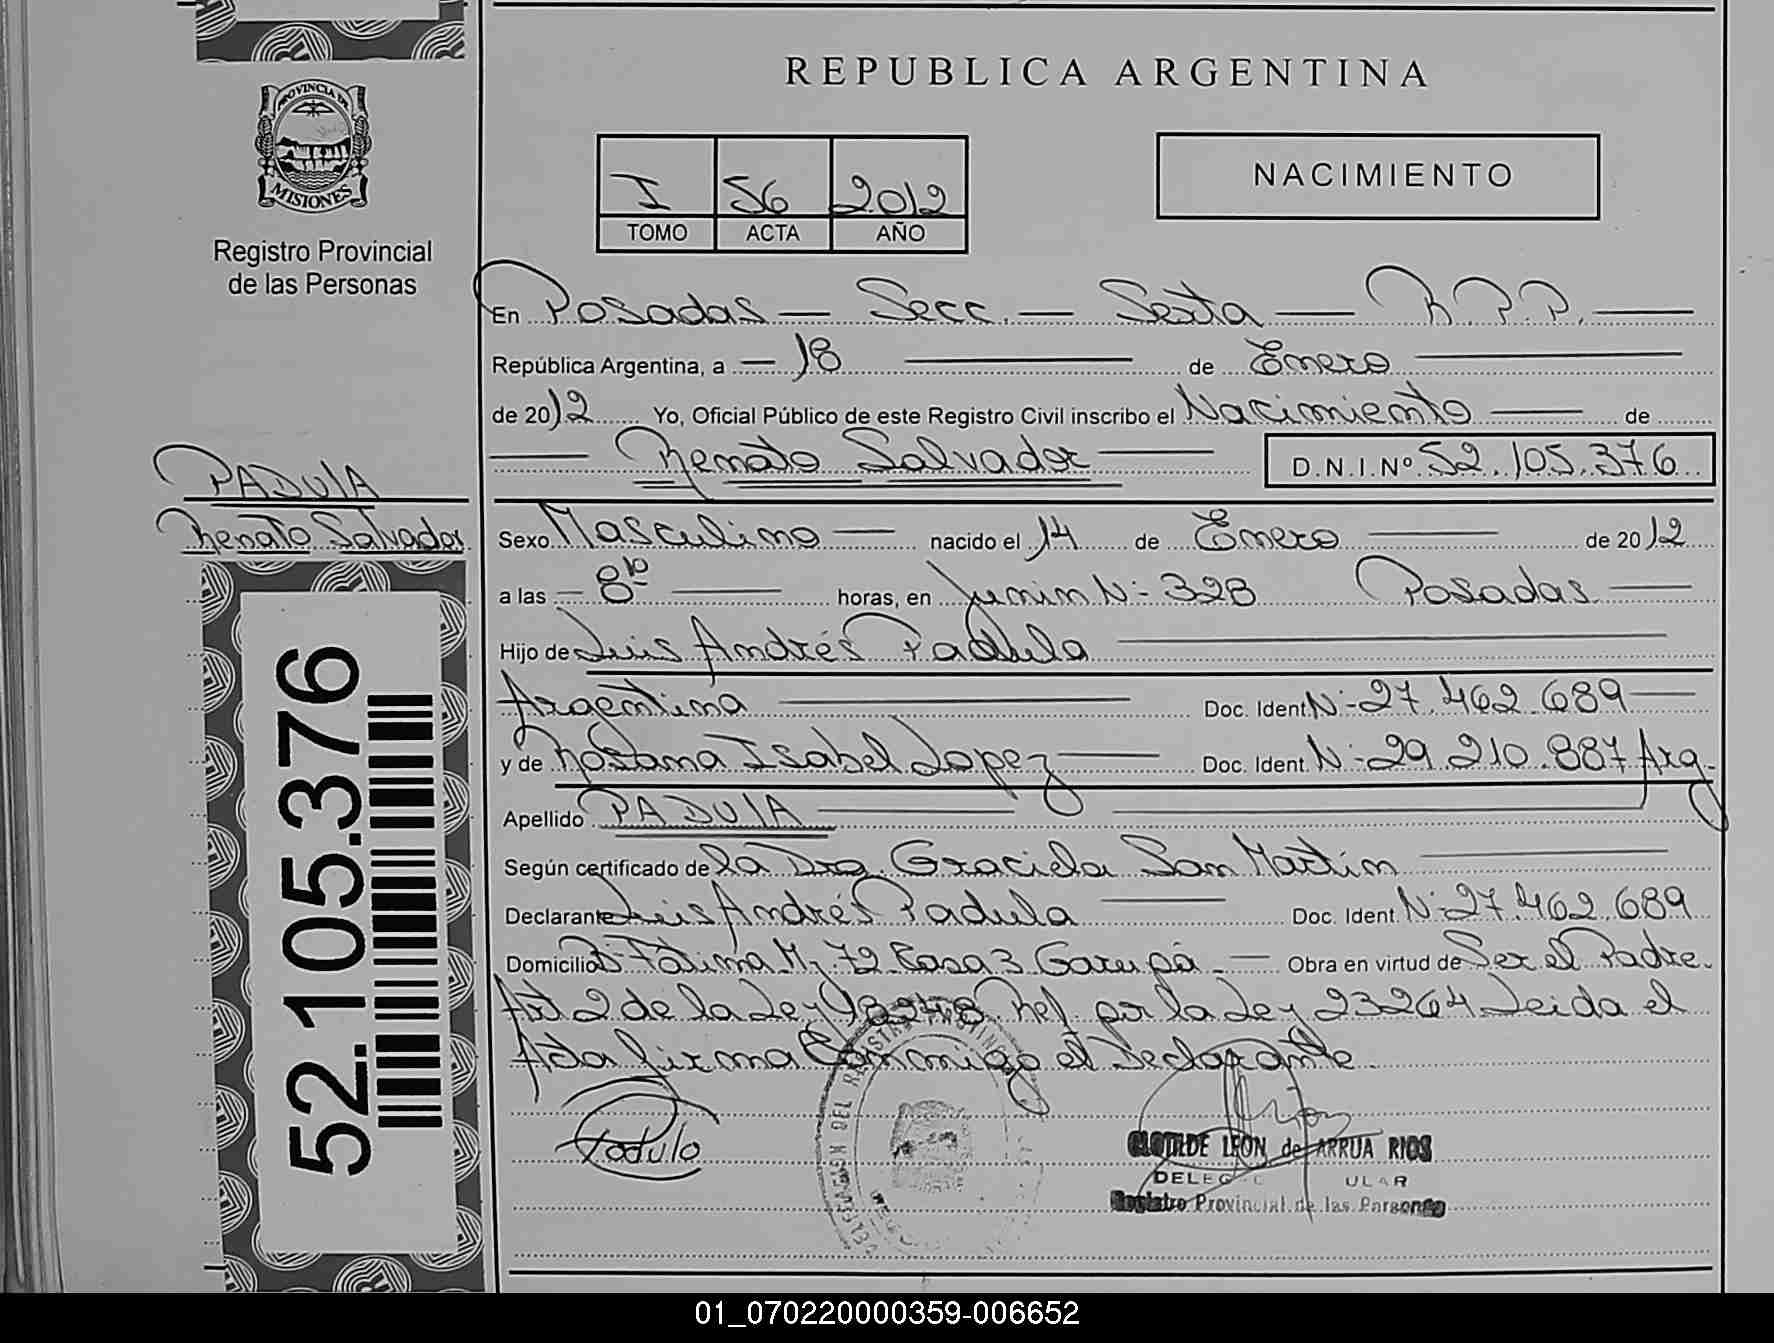 REPUBLICA ARGENTINA
PROVINCIA DE
MISIONES
Registro Provincial
de las Personas
I 56 2012
TOMO ACTA AÑO
NACIMIENTO
En Posadas — Secc. — Sexta — R.P.P. —
República Argentina, a — 18 — de Enero —
de 2012 Yo, Oficial Público de este Registro Civil inscribo el Nacimiento — de
— Renato Salvador — D.N.I. Nº 52.105.376
PADULA
Renato Salvador
Sexo Masculino — nacido el 14 de Enero — de 2012
a las — 8 10 — horas, en Junin Nº 328 Posadas —
Hijo de Luis Andrés Padula —
Argentina — Doc. Ident. Nº 27.462.689 —
y de Rosana Isabel Lopez — Doc. Ident. Nº 29.210.887 Arg.
Apellido PADULA —
Según certificado de la Dra. Graciela San Martin —
Declarante Luis Andrés Padula — Doc. Ident. Nº 27.462.689
Domicilio Bº Fátima Mz 72 Casa 3 Garupá. — Obra en virtud de Ser el Padre.
Art 2 de la Ley 18248 Ref. por la Ley 23264 Leida el
Acta firma Conmigo el Declarante.
52.105.376
Padula
CLOTILDE LEON de ARRUA RIOS
Registro Provincial de las Personas
01_070220000359-006652